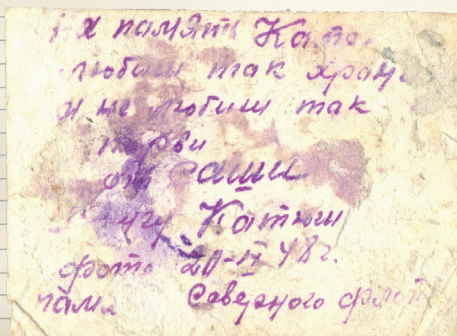 память Кате
любиш так храни
а не любиш так
порви
от Саши
Катюш
фото 20-IV 48 г.
Северного флот